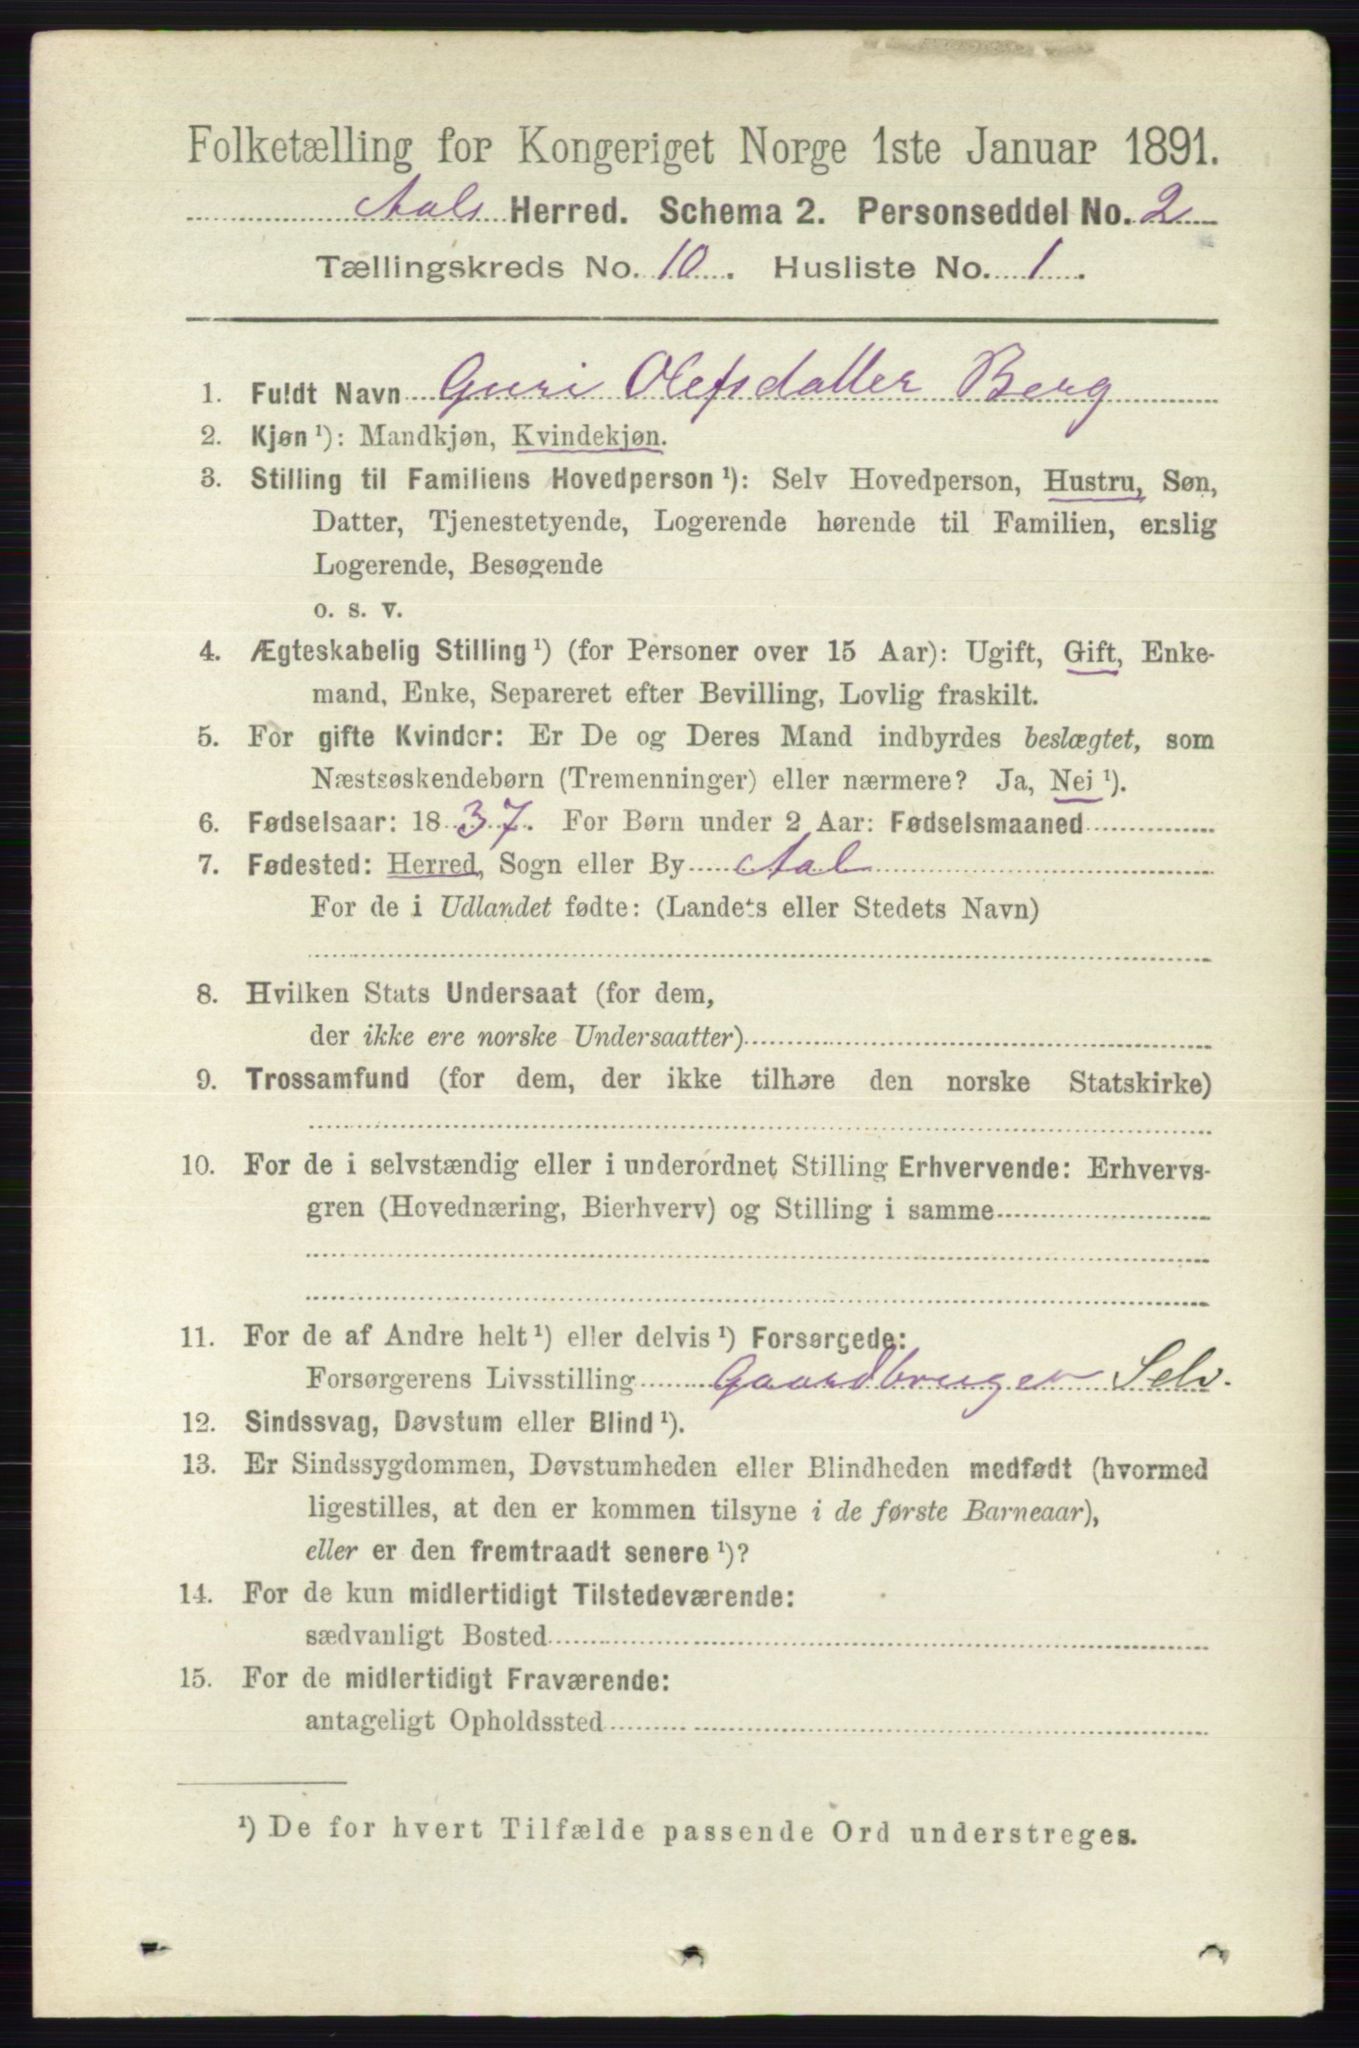 Folketælling for Kongeriget Norge 1ste Januar 1891.
Aals Herred. Schema 2. Personseddel No. 2
Tællingskreds No. 10. Husliste No. 1.
1. Fuldt Navn Guri Olefsdatter Berg
2. Kjøn ¹): Mandkjøn, Kvindekjøn.
3. Stilling til Familiens Hovedperson ¹): Selv Hovedperson, Hustru, Søn,
Datter, Tjenestetyende, Logerende hørende til Familien, enslig
Logerende, Besøgende
o. s. v.
4. Ægteskabelig Stilling ¹) (for Personer over 15 Aar): Ugift, Gift, Enke-
mand, Enke, Separeret efter Bevilling, Lovlig fraskilt.
5. For gifte Kvinder: Er De og Deres Mand indbyrdes beslægtet, som
Næstsøskendebørn (Tremenninger) eller nærmere? Ja, Nei ¹).
6. Fødselsaar: 1837. For Børn under 2 Aar: Fødselsmaaned
7. Fødested: Herred, Sogn eller By Aal
For de i Udlandet fødte: (Landets eller Stedets Navn)
8. Hvilken Stats Undersaat (for dem,
der ikke ere norske Undersaatter)
9. Trossamfund (for dem, der ikke tilhøre den norske Statskirke)
10. For de i selvstændig eller i underordnet Stilling Erhvervende: Erhvervs-
gren (Hovednæring, Bierhverv) og Stilling i samme
11. For de af Andre helt ¹) eller delvis ¹) Forsørgede:
Forsørgerens Livsstilling Gaardbruger Selv.
12. Sindssvag, Døvstum eller Blind ¹).
13. Er Sindssygdommen, Døvstumheden eller Blindheden medfødt (hvormed
ligestilles, at den er kommen tilsyne i de første Barneaar),
eller er den fremtraadt senere ¹)?
14. For de kun midlertidigt Tilstedeværende:
sædvanligt Bosted
15. For de midlertidigt Fraværende:
antageligt Opholdssted
¹) De for hvert Tilfælde passende Ord understreges.